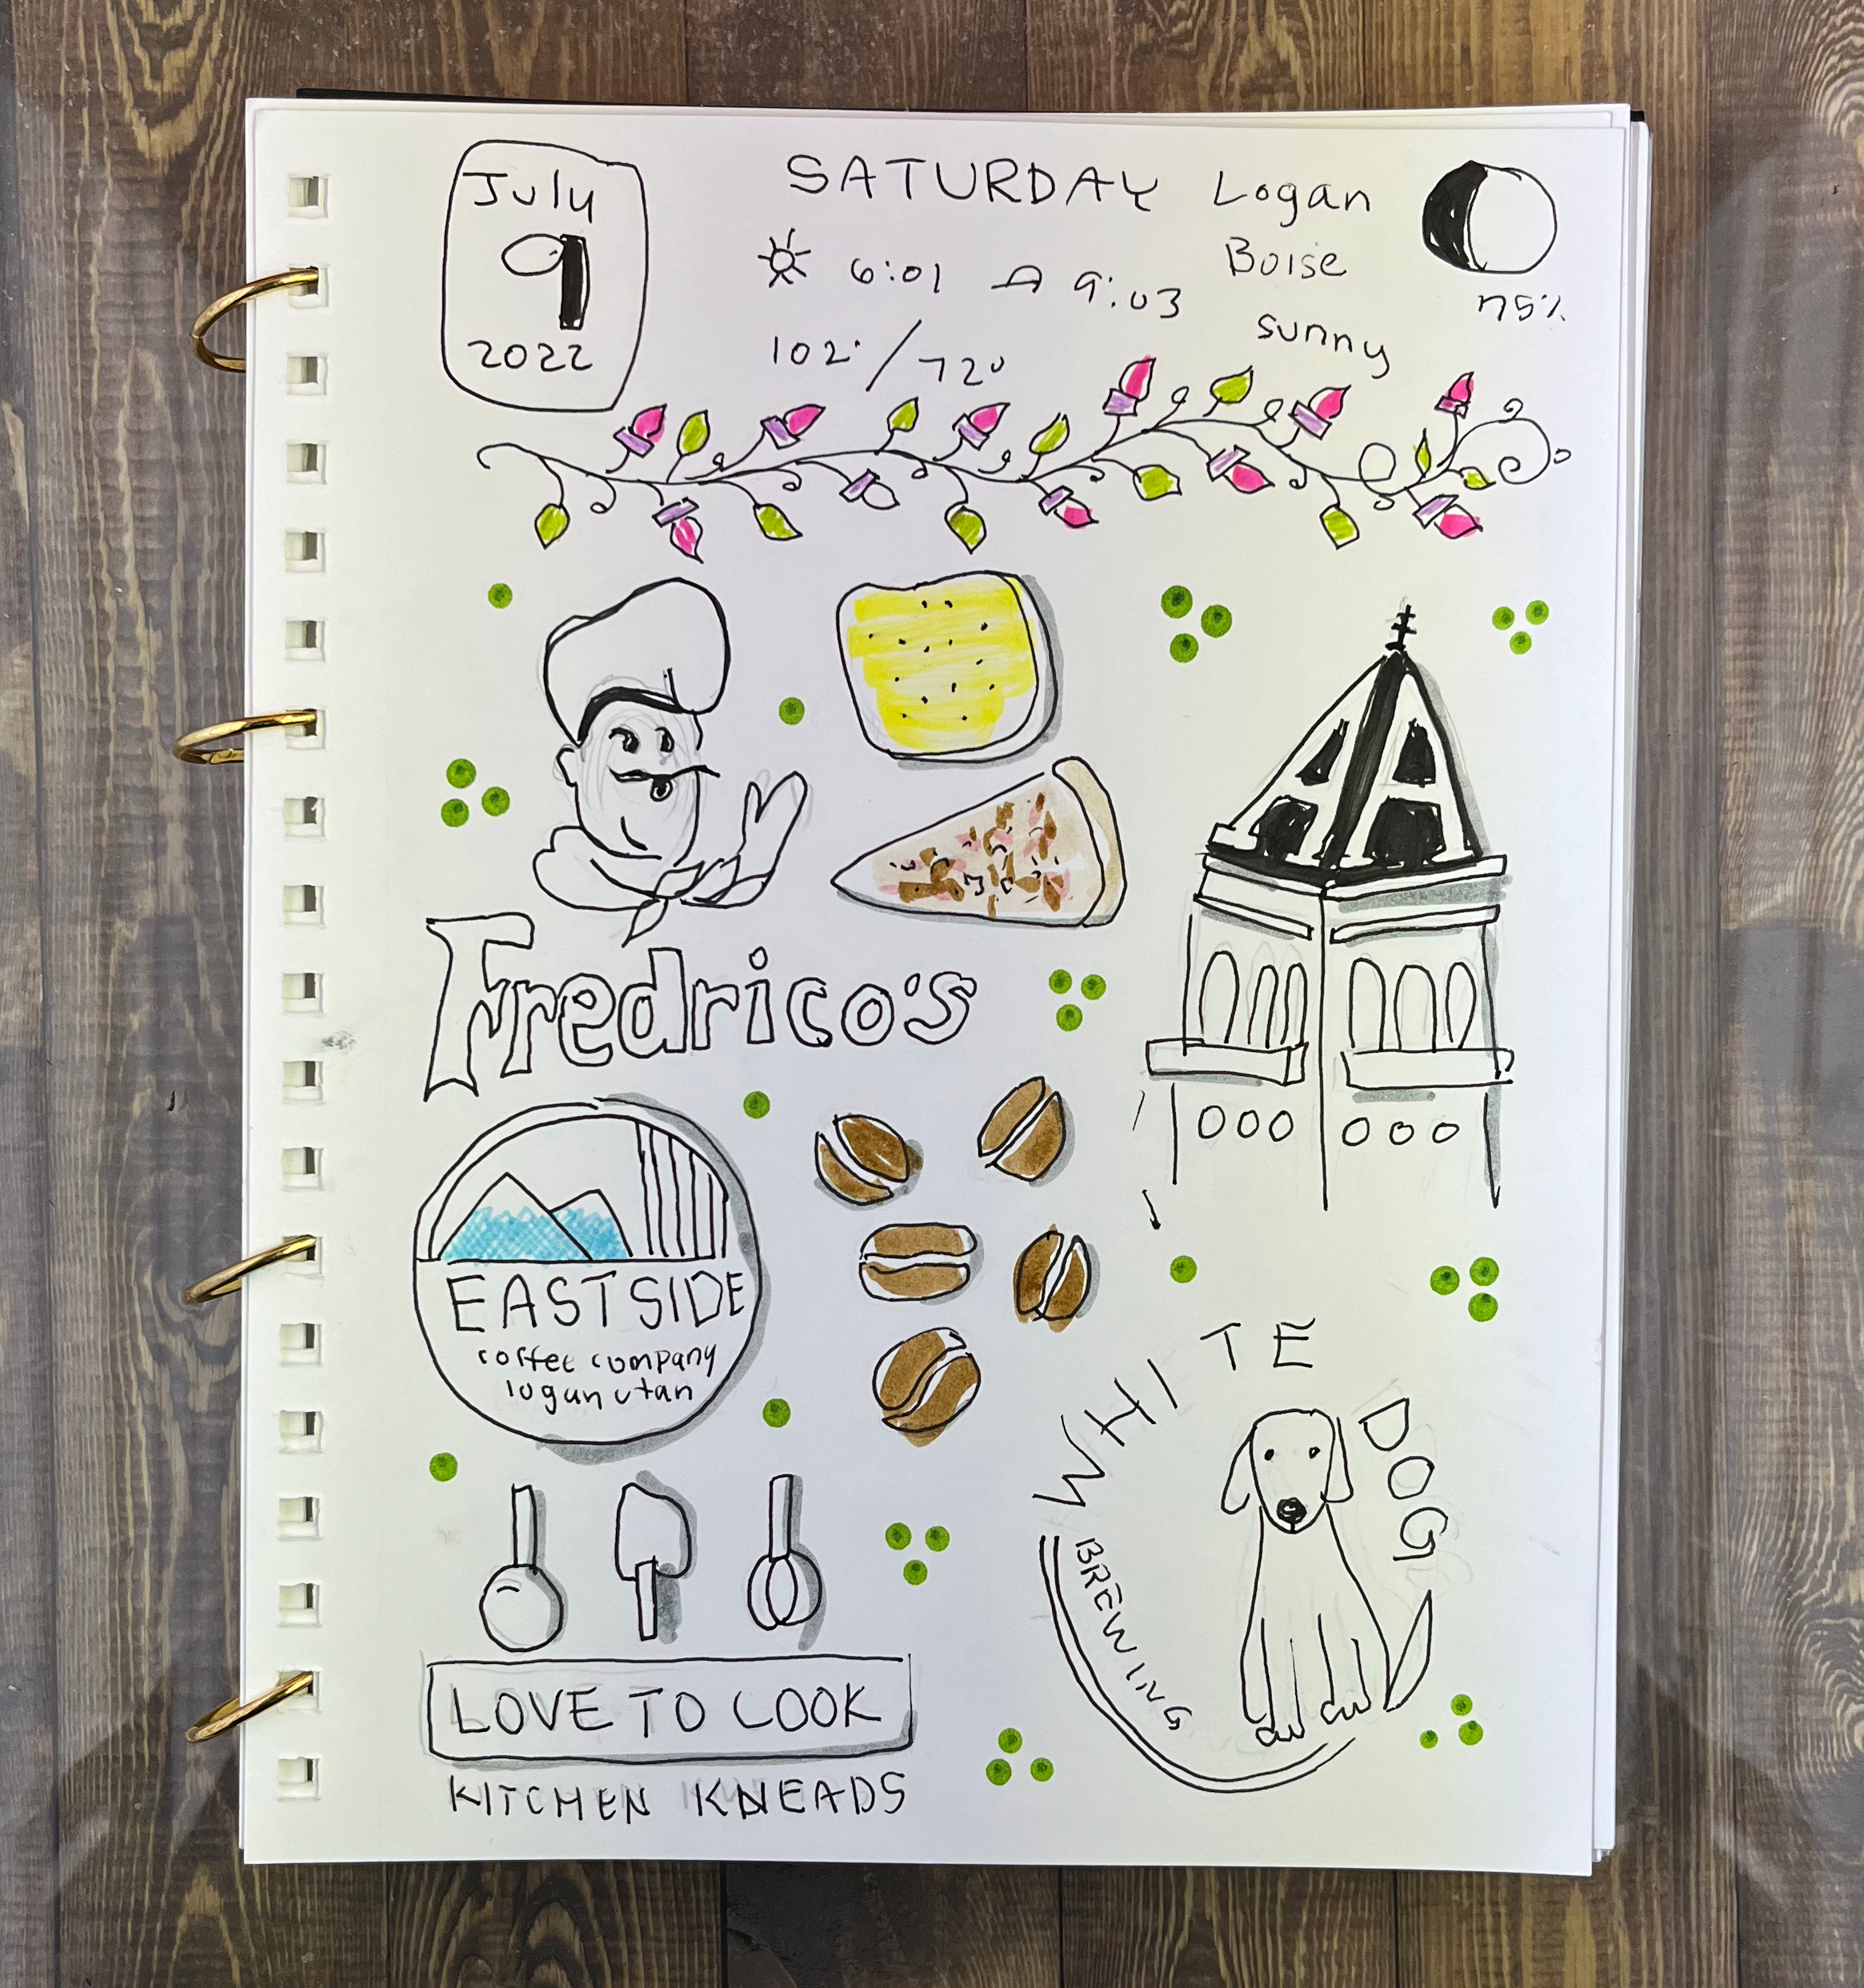 July
9
2022
SATURDAY
Logan
Boise
sunny
6:01 9:03
102° / 72°
75%
Fredrico's
EASTSIDE
coffee company
logan utah
WHITE DOG
BREWING
LOVE TO COOK
KITCHEN KNEADS